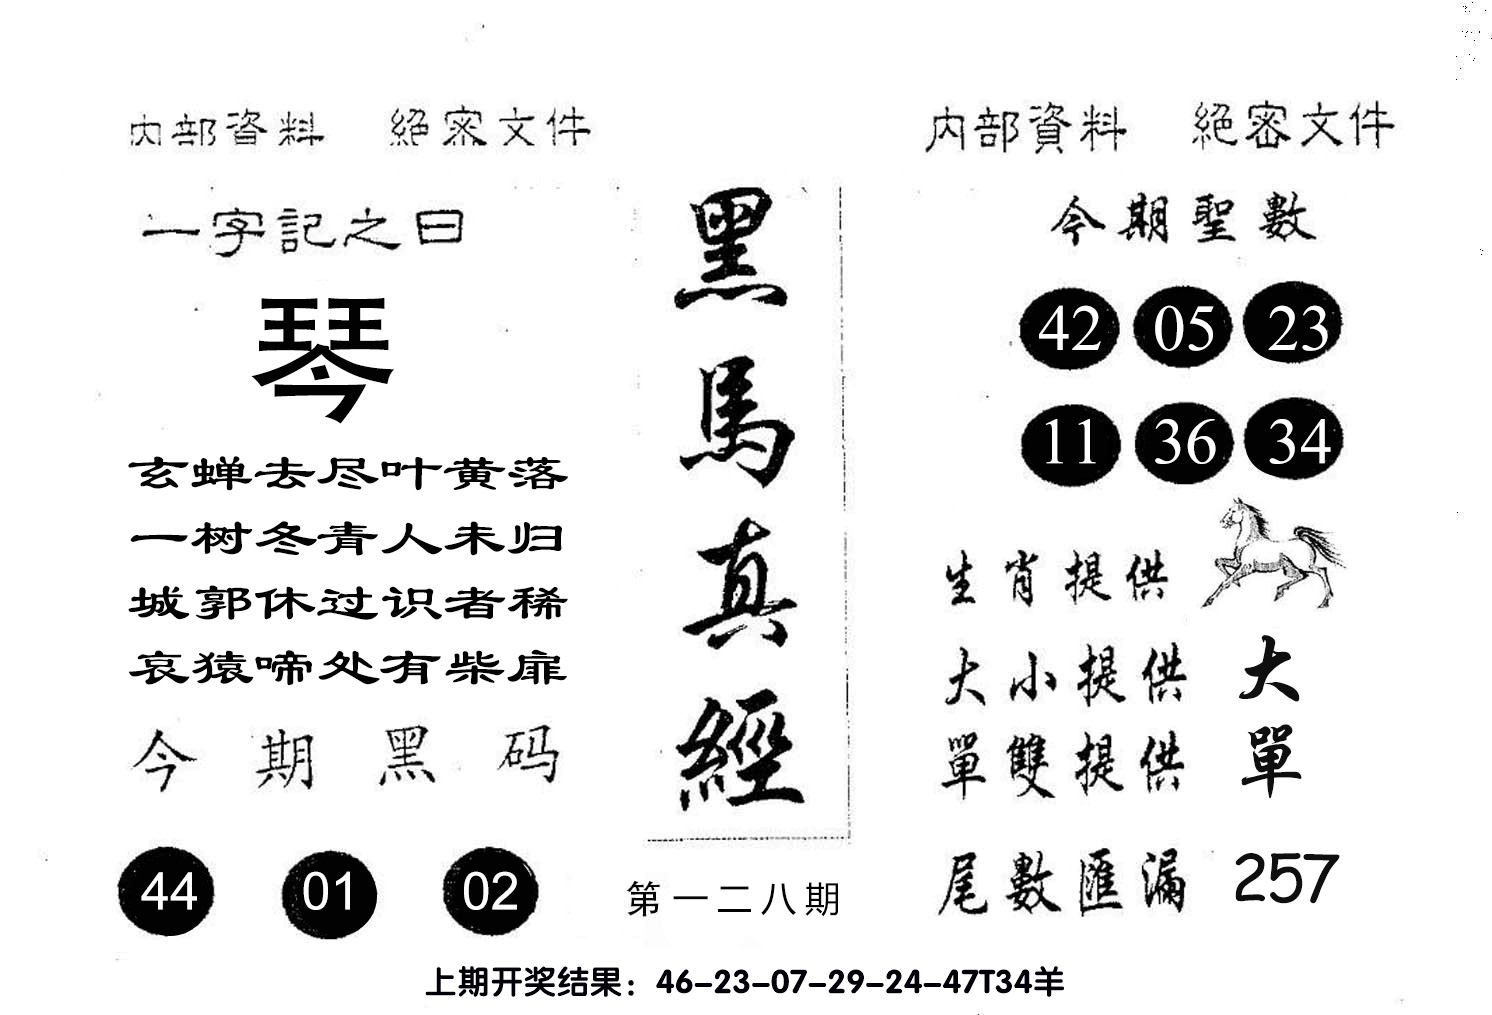 内部資料 絕密文件
一字記之曰
琴
玄蝉去尽叶黄落
一树冬青人未归
城郭休过识者稀
哀猿啼处有柴扉
今期黑码
44 01 02
黑馬真經
第一二八期
内部資料 絕密文件
今期聖數
42 05 23
11 36 34
生肖提供
大小提供 大
單雙提供 單
尾數匯漏 257
上期开奖结果：46-23-07-29-24-47T34羊